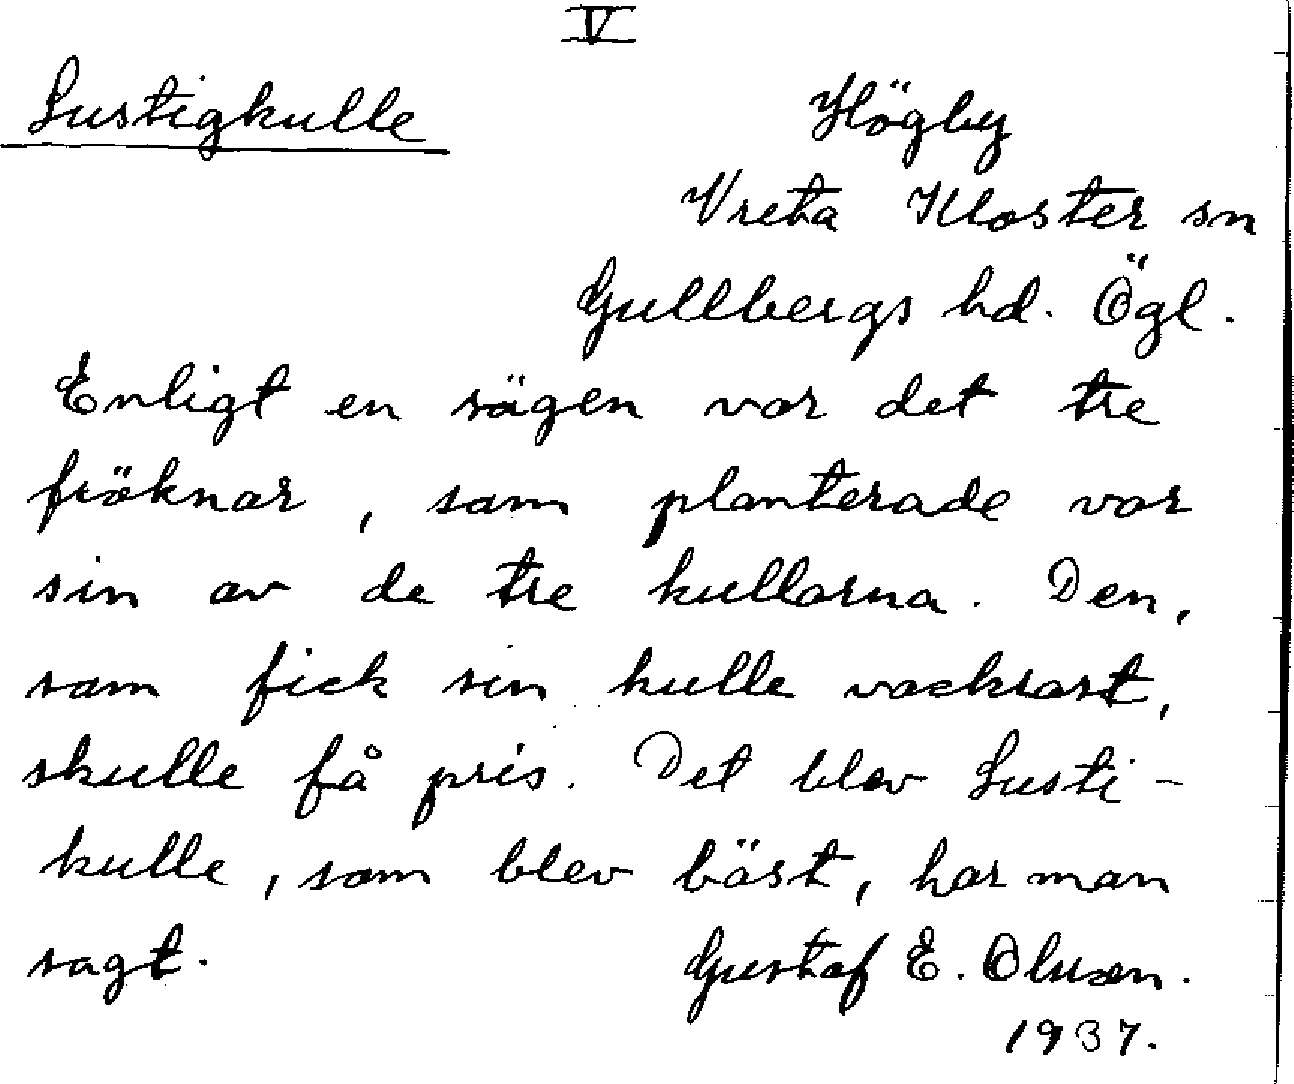 V
Lustigkulle
Högby
Vreta Kloster sn
Gullbergs hd. Ögl.
Enligt en sägen var det tre
fröknar, som planterade var
sin av de tre kullarna. Den,
som fick sin kulle vackrast,
skulle få pris. Det blev Lusti-
kulle, som blev bäst, har man
sagt.
Gustaf E. Olsson.
1937.